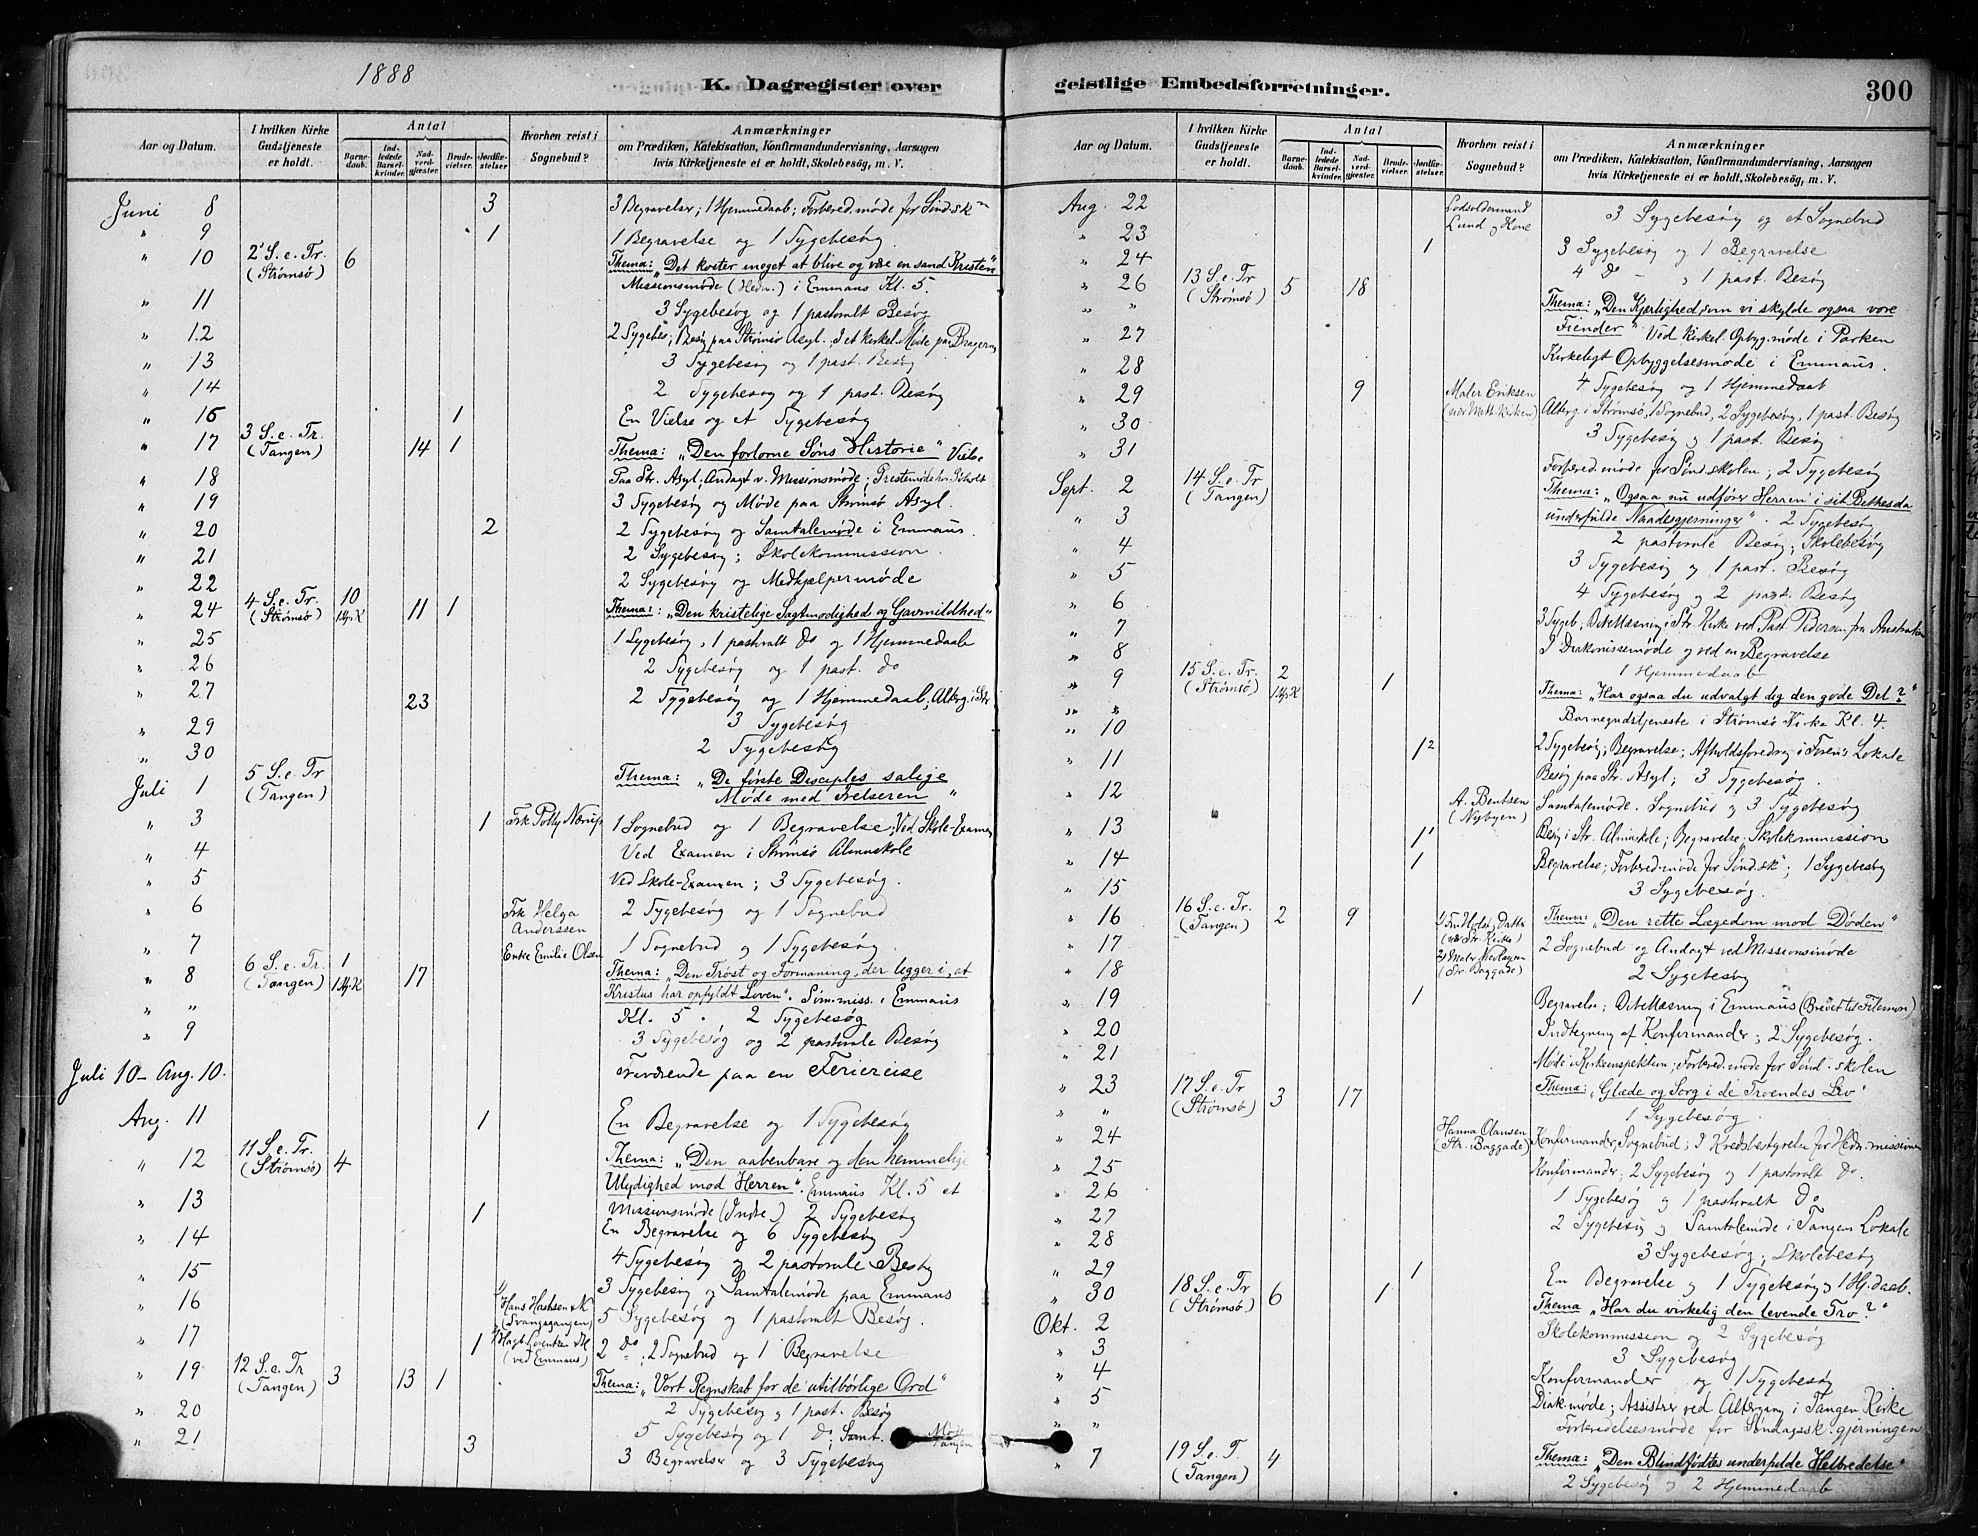 1888
K. Dagregister over
Aar og Datum.
I hvilken Kirke Gudstjeneste er holdt.
Antal
Barnedaab.
Indledede Barselkvinder.
Nadverdgjester.
Brudevielser.
Jordfæstelser
Hvorhen reist i Sognebud?
Anmærkninger
om Prædiken, Katekisation, Konfirmandundervisning, Aarsagen
hvis Kirketjeneste ei er holdt, Skolebesøg, m. V.
Juni 8 3 3 Begravelser; 1 Hjemmedaab; Forbered.møde for Sind.sk
" 9 1 1 Begravelse og 1 Sygebesøg.
" 10 2' S. e. Tr. (Strømsø) 6 Thema: "Det koster meget at blive og være en sand Kristen"
Missionsmøde (Hedn.) i Emmaus Kl. 5.
" 11 3 Sygebesøg og 1 pastoralt Besøg
" 12 2 Sygebes; 1 Besøg paa Strømsø Asyl;
" 13 3 Sygebesøg og 1 past. Besøg
" 14 2 Sygebesøg og 1 past. Besøg
" 16 1 En Vielse og et Sygebesøg
" 17 3 S. e. Tr. (Tangen) 14 1 Thema: "Den forlorne Søns Historie" Vielse
" 18 Paa Str. Asyl; Andagt v. Missionsmøde;
" 19 3 Sygebesøg og Møde paa Strømsø Asyl.
" 20 2 2 Sygebesøg og Samtalemøde i Emmaus.
" 21 2 Sygebesøg; Skolekommission
" 22 2 Sygebesøg og Medhjælpermøde
" 24 4 S. e. Tr. (Strømsø) 10 11 1 Thema: "Den kristelige Sagtmodighed og Gavmildhed"
" 25 1 Sygebesøg, 1 pastoralt do og 1 Hjemmedaab
" 26 2 Sygebesøg og 1 past. do
" 27 23 2 Sygebesøg og 1 Hjemmedaab; Alterg. i Str
" 29 3 Sygebesøg
" 30 2 Sygebesøg
Juli 1 5 S. e. Tr (Tangen) Thema: "De første Disciples salige
Møde med Frelseren"
" 3 1 Frk Polly Nærup 1 Sognebud og 1 Begravelse; Ved Skole-Examen
" 4 Ved Examen i Strømsø Almuskole
" 5 Ved Skole-Examen; 3 Sygebesøg.
" 6 Frk Helga Anderssen 2 Sygebesøg og 1 Sognebud
" 7 Enke Emilie Olsen 1 Sognebud og 1 Sygebesøg
" 8 6 S. e. Tr. (Tangen) 1 17 Thema: "Den Trøst og Formaning, der ligger i, at
Kristus har opfyldt Loven". Sømmiss. i Emmaus
" " Kl. 5. 2 Sygebesøg
" 9 3 Sygebesøg og 2 pastorale Besøg
Juli 10 - Aug. 10. Fraværende paa en Feriereise
Aug. 11 1 En Begravelse og 1 Sygebesøg
" 12 11 S. e. Tr. (Strømsø) 4 Thema: "Den aabenbare og den hemmelige
Ulydighed mod Herren". Emmaus Kl. 5 et
" 13 1 Missionsmøde (Indre) 2 Sygebesøg
En Begravelse og 6 Sygebesøg
" 14 4 Sygebesøg og 2 pastorale Besøg
" 15 3 Sygebesøg og Samtalemøde paa Emmaus
" 16 (Svangsgangen) 5 Sygebesøg og 1 pastoralt Besøg.
" 17 1 (ved Emmaus) 2 do; 2 Sognebud og 1 Begravelse
" 19 12 S. e. Tr (Tangen) 3 13 1 Thema: "Vort Regnskab for de utilbørlige Ord"
" 20 2 Sygebesøg og 1 past. Besøg
" 21 3 5 Sygebesøg og 1 do; Samt. Møde Tangen
3 Begravelser og 3 Sygebesøg
geistlige Embedsforretninger.
300
Aar og Datum.
I hvilken Kirke Gudstjeneste er holdt.
Antal
Barnedaab.
Indledede Barselkvinder.
Nadverdgjester.
Brudevielser.
Jordfæstelser.
Hvorhen reist i Sognebud?
Anmærkninger
om Prædiken, Katekisation, Konfirmandundervisning, Aarsagen
hvis Kirketjeneste ei er holdt, Skolebesøg, m. V.
Aug. 22 Lodsoldermand Lund og Kone 3 Sygebesøg og et Sognebud
" 23 1 3 Sygebesøg og 1 Begravelse
" 24 4 do " 1 past. Besøg
" 26 13 S. e. Tr (Strømsø) 5 18 Thema: "Den Kjærlighed, som vi skylde ogsaa vore
" " Fiender" Ved kirkel. Opbyg.møde i Parken
" 27 Kirkeligt Opbyggelsesmøde i Emmaus.
" 28 4 Sygebesøg og 1 Hjemmedaab
" 29 9 Maler Eriksen Alterg. i Strømsø, 1 Sognebud, 2 Sygebesøg, 1 past. Besøg
" 30 3 Sygebesøg og 1 past. Besøg
" 31 Forbered.møde for Sønd.skolen; 2 Sygebesøg
Sept. 2 14 S. e. Tr (Tangen) Thema: "Ogsaa nu udfører Herren i sit Bethesda
underfulde Naadesgjerninger". 2 Sygebesøg
" 3 2 pastorale Besøg; Skolebesøg
" 4 3 Sygebesøg og 1 past. Besøg
" 5 4 Sygebesøg og 2 past. Besøg
" 6 3 Sygeb; Bibellæsning i Str. Kirke ved Past. Pedersen fra Australien
" 7 I Diakonissemøde og ved en Begravelse
" 8 1 Hjemmedaab
" 9 15 S. e. Tr. (Strømsø) 2 1 Thema: "Har ogsaa du udvalgt dig den gode Del?"
" " Barnegudstjeneste i Strømsø Kirke Kl. 4.
" 10 1 2 Sygebesøg; Begravelse; Afholdsforedrag i Foren's Lokale
" 11 Besøg paa Str. Asyl; 3 Sygebesøg.
" 12 A. Bentsen (Nybyen) Samtalemøde. Sognebud og 3 Sygebesøg
" 13 1 Besøg i Str. Almuskole; Begravelse; Skolekommission
" 14 1 Begravelse; Forbered.møde for Sønd.sk; 1 Sygebesøg
" 15 3 Sygebesøg.
" 16 16 S. e. Tr. (Tangen) 2 9 Thema: "Den rette Lægedom mod Døden"
" 17 2 Sognebud og Andagt ved Missionsmøde
" 18 2 Sygebesøg
" 19 1 Begravelse; Bibellæsning i Emmaus (Brevet til Filemon)
" 20 Indtegning af Konfirmander; 2 Sygebesøg.
" 21 Møde i Kirkeinspektion; Forbered.møde for Sønd.skolen
" 23 17 S. e. Tr (Strømsø) 3 17 Thema: "Glæde og Sorg i de Troendes Liv"
" " 1 Sygebesøg
" 24 Hanna Olausen (Str. Baggade) Konfirmander, Sognebud; I Kredsbestyrelse for Hedn. missionen
" 25 Konfirmander; 2 Sygebesøg og 1 pastoralt do.
" 26 1 Sygebesøg og 1 pastoralt do
" 27 2 Sygebesøg og Samtalemøde i Tangen Lokale
" 28 3 Sygebesøg; Skolebesøg
" 29 1 En Begravelse og 1 Sygebesøg og 1 Hj.daab.
" 30 18 S. e. Tr (Strømsø) 6 1 Thema "Har du virkelig den levende Tro?"
Okt. 2 Skolekommission og 2 Sygebesøg
" 3 3 Sygebesøg
" 4 Konfirmander og 1 Sygebesøg
" 5 Diak.møde; Assistrer ved Altergang i Tangen Kirke
" " Forberedelsesmøde for Søndagssk. gjerningen
" 7 19 S. e. T. (Tangen) 4 Thema: "Den Blindfødtes underfulde Helbredelse"
2 Sygebesøg og 2 Hjemmedaab